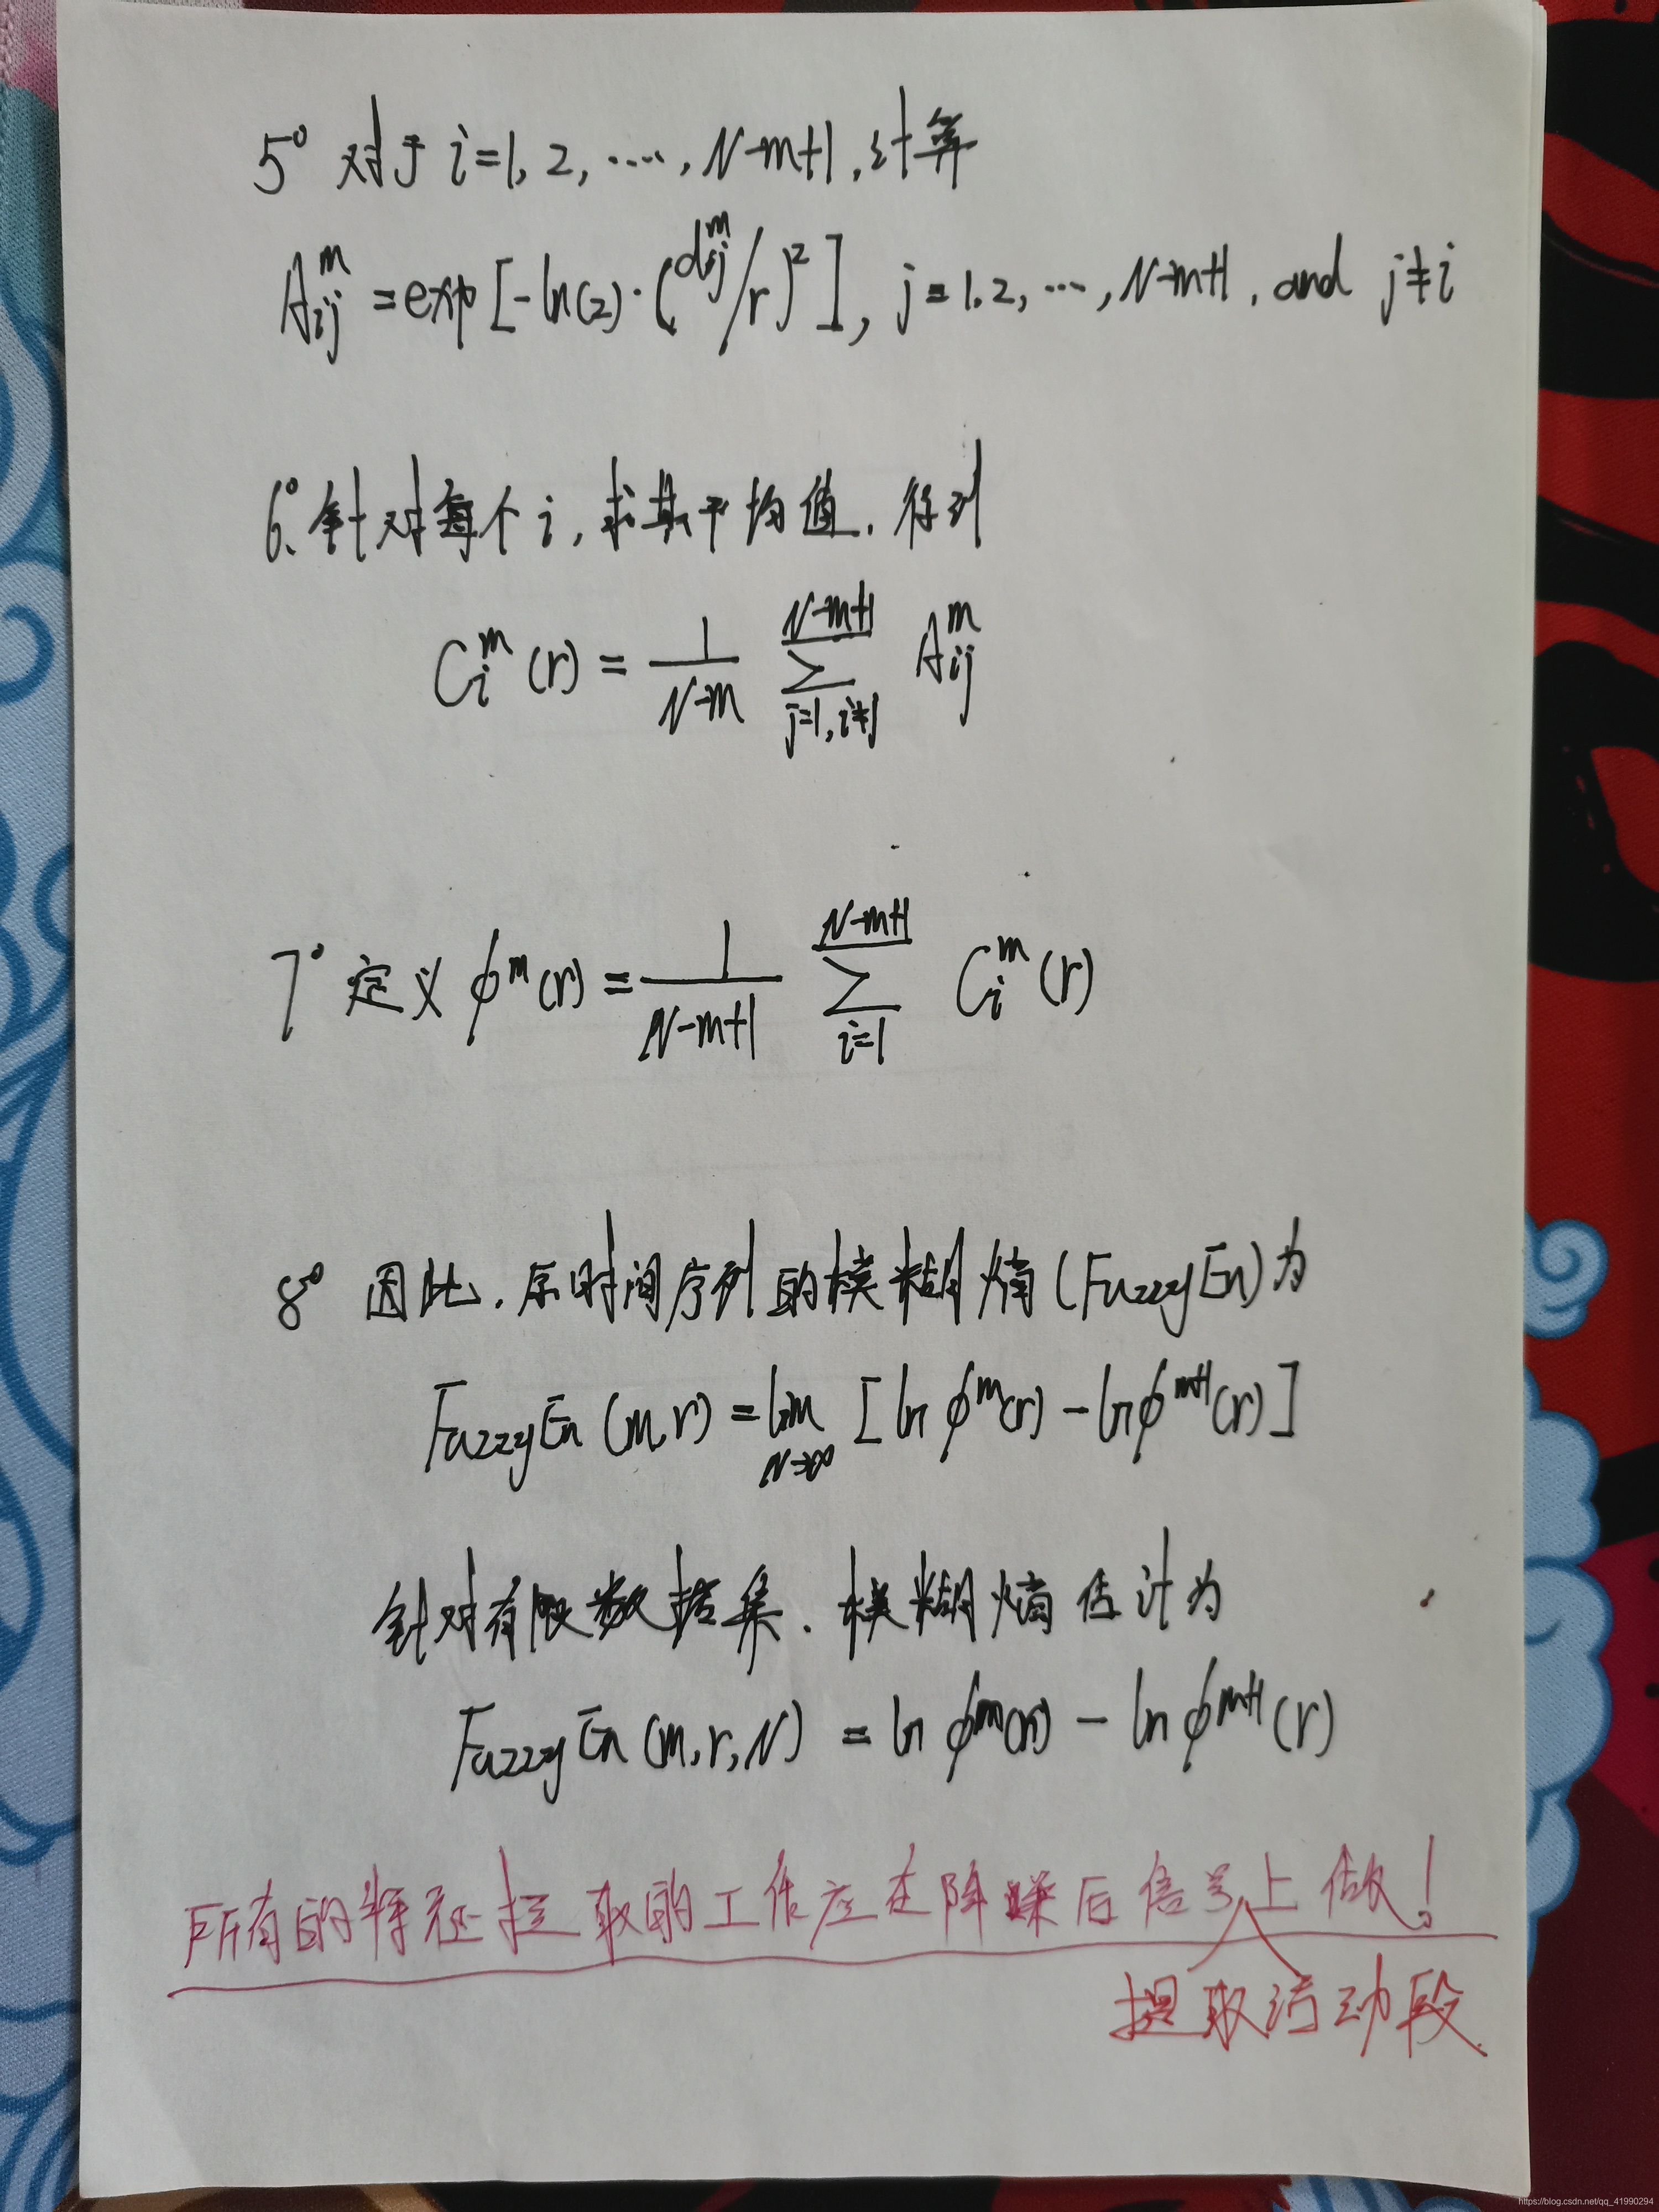 5° 对于 i=1, 2, ...., N-m+1, 计算
A_{ij}^{m} = exp[-ln(2)·(d_{ij}^{m}/r)²], j=1,2, ..., N-m+1, and j≠i
6°. 针对每个 i, 求其平均值, 得到
C_i^m (r) = \frac{1}{N-m} \sum_{j=1, i≠j}^{N-m+1} A_{ij}^m
7° 定义 φ^m(r) = \frac{1}{N-m+1} \sum_{i=1}^{N-m+1} C_i^m (r)
8° 因此, 原时间序列的模糊熵(FuzzyEn)为
FuzzyEn (m,r) = \lim_{N→∞} [ln φ^m(r) - ln φ^{m+1}(r)]
针对有限数据集, 模糊熵估计为
FuzzyEn (m,r,N) = ln φ^m(r) - ln φ^{m+1}(r)
所有的特征提取的工作应在降噪后信号上做!
提取活动段.
https://blog.csdn.net/qq_41990294